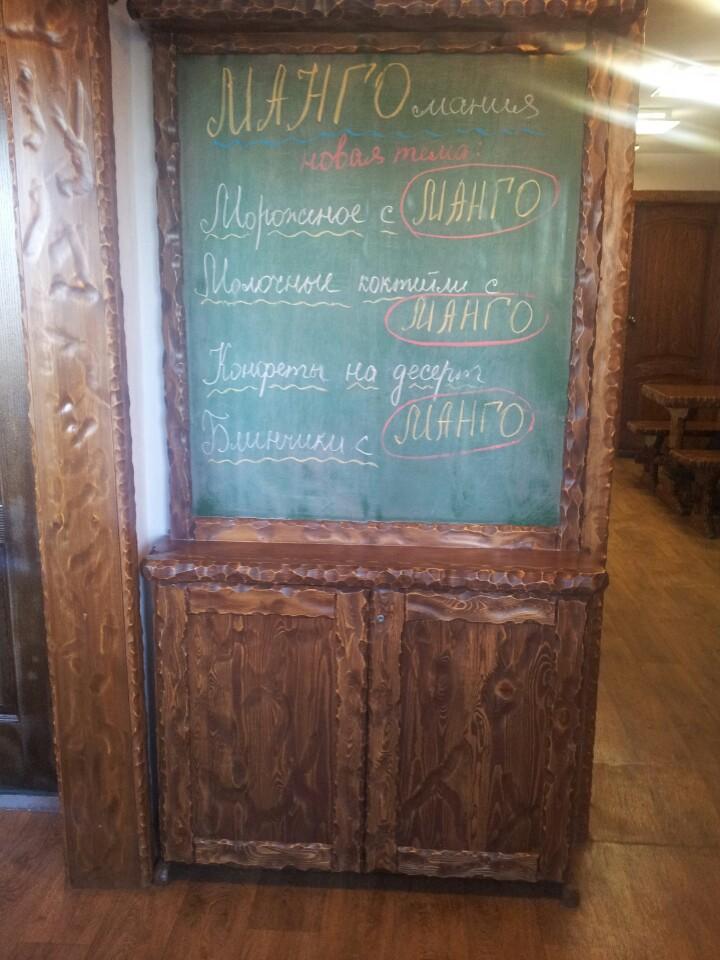 МАНГО мания
новая тема:
Мороженое с МАНГО
Молочные коктейли с
МАНГО
Конфеты на десерт
Блинчики с МАНГО